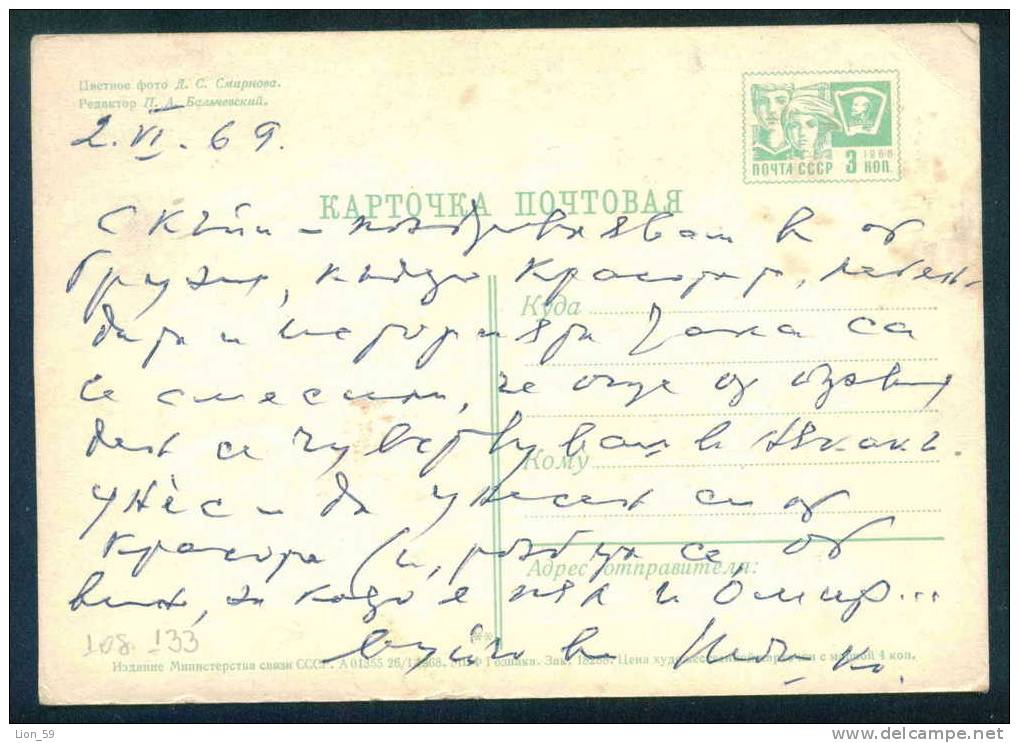 Цветное фото Д. С. Смирнова.
Редактор П. А. Бельчевский.
2.VI.69.
ПОЧТА СССР 3 КОП.
1966
КАРТОЧКА ПОЧТОВАЯ
Скъпи – поздравявам ви от
Грузия, където красота, леген-
дари и история така са
се смесили, че още от първия
ден се чувствувам в някакъв
унес и да унесен съм от
красота (и, разбира се от
вино, за което е пял и Омир...
Куда
Кому
Адрес отправителя:
108. 133
Издание Министерства связи СССР. А 01355 26/I 1968. МПФ Гознака. Зак. 18288. Цена художественной карточки с маркой 4 коп.
Lion_59
www.delcampe.net